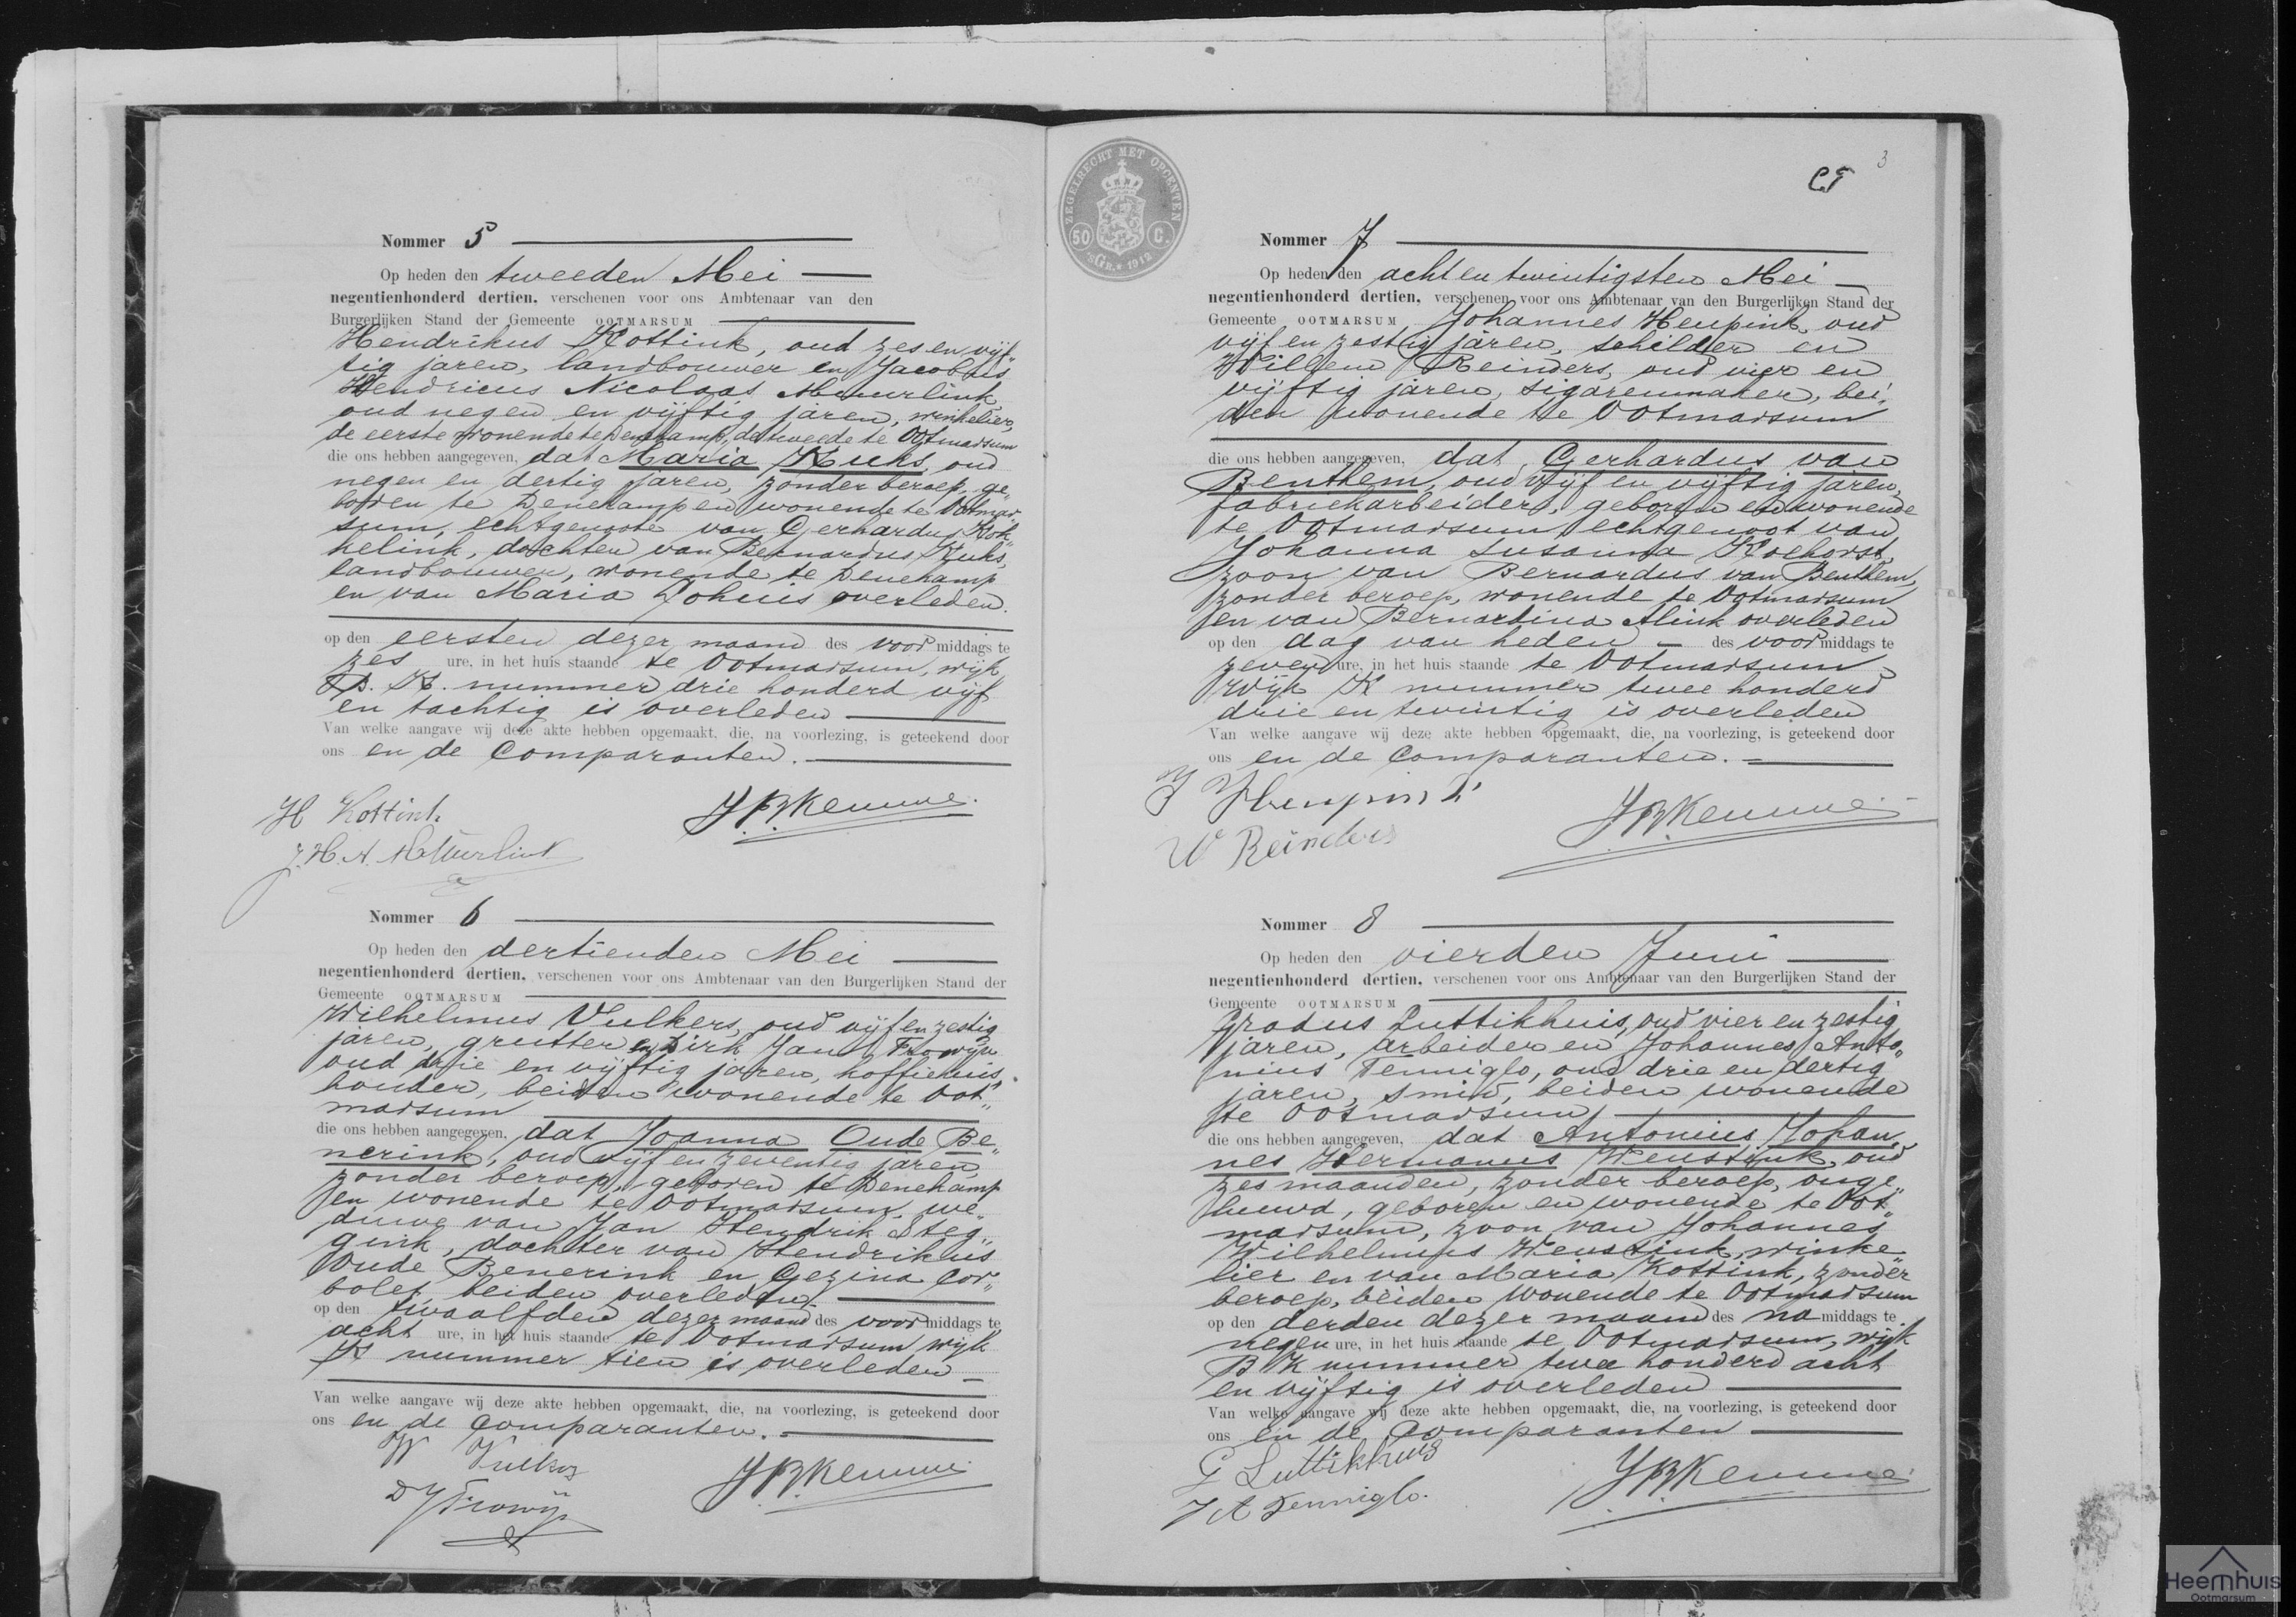 Nommer 5
Op heden den tweeden Mei
negentienhonderd dertien, verschenen voor ons Ambtenaar van den
Burgerlijken Stand der Gemeente OOTMARSUM
Hendrikus Kottink, oud zes en vijf„
tig jaren, landbouwer en Jacobus
Hendricus Nicolaas Meurlink
oud negen en vijftig jaren, winkelier,
de eerste wonende te Denekamp, de tweede te Ootmarsum
die ons hebben aangegeven, dat Maria Kuhs, oud
negen en dertig jaren, zonder beroep, ge„
boren te Denekamp en wonende te Ootmar
sum, echtgenoote van Gerhardus Kok„
helink, dochter van Bernardus Kuhs,
landbouwer, wonende te Denekamp
en van Maria Lohuis overleden.
op den eersten dezer maand des voor middags te
zes ure, in het huis staande te Ootmarsum, wijk
B. K. nummer drie honderd vijf
en tachtig is overleden
Van welke aangave wij deze akte hebben opgemaakt, die, na voorlezing, is geteekend door
ons en de Comparanten.
H Kottink
J.B.Kemme
J. H. N. Meurlink
Nommer 6
Op heden den dertienden Mei
negentienhonderd dertien, verschenen voor ons Ambtenaar van den Burgerlijken Stand der
Gemeente OOTMARSUM
Wilhelmus Vulkers, oud vijf en zestig
jaren, grutter en Dirk Jan Frowijn
oud drie en vijftig jaren, koffiehuis„
houder, beiden wonende te Oot„
marsum
die ons hebben aangegeven, dat Joanna Oude Be„
nerink, oud vijf en zeventig jaren,
zonder beroep, geboren te Denekamp
en wonende te Ootmarsum, we„
duwe van Jan Hendrik Steg„
gink, dochter van Hendrikus
Oude Benerink en Gezina Cor„
bolet, beiden overleden.
op den twaalfden dezer maand des voor middags te
acht ure, in het huis staande te Ootmarsum wijk
K nummer tien is overleden
Van welke aangave wij deze akte hebben opgemaakt, die, na voorlezing, is geteekend door
ons en de Comparanten.
W Vulkers
J.B.Kemme
D J Frowijn
ZEGELRECHT MET OPCENTEN
50 C.
'SGR. 1912
3
Nommer 7
Op heden den acht en twintigsten Mei
negentienhonderd dertien, verschenen voor ons Ambtenaar van den Burgerlijken Stand der
Gemeente OOTMARSUM Johannes Heupink, oud
vijf en zestig jaren, schilder en
Willem Reinders, oud vier en
vijftig jaren, sigarenmaker, bei„
den wonende te Ootmarsum
die ons hebben aangegeven, dat Gerhardus van
Benthem, oud vijf en vijftig jaren,
fabriekarbeider, geboren en wonende
te Ootmarsum echtgenoot van
Johanna Susanna Koehorst,
zoon van Bernardus van Benthem,
zonder beroep, wonende te Ootmarsum
en van Bernardina Alink overleden
op den dag van heden des voor middags te
zeven ure, in het huis staande te Ootmarsum
wijk K nummer twee honderd
drie en twintig is overleden
Van welke aangave wij deze akte hebben opgemaakt, die, na voorlezing, is geteekend door
ons en de Comparanten.
J Heupink
J.B.Kemme
W Reinders
Nommer 8
Op heden den vierden Juni
negentienhonderd dertien, verschenen voor ons Ambtenaar van den Burgerlijken Stand der
Gemeente OOTMARSUM
Gradus Luttikhuis, oud vier en zestig
jaren, arbeider en Johannes Anto„
nius Tenniglo, oud drie en dertig
jaren, smid, beiden wonende
te Ootmarsum
die ons hebben aangegeven, dat Antonius Johan„
nes Hermanus Weustink, oud
zes maanden, zonder beroep, onge„
huwd, geboren en wonende te Oot„
marsum, zoon van Johannes
Wilhelmus Weustink, winke„
lier en van Maria Kottink, zonder
beroep, beiden wonende te Ootmarsum
op den derden dezer maand des na middags te
negen ure, in het huis staande te Ootmarsum, wijk
B K nummer twee honderd acht
en vijftig is overleden
Van welke aangave wij deze akte hebben opgemaakt, die, na voorlezing, is geteekend door
ons en de Comparanten
G Luttikhuis
J.B.Kemme
J A Tenniglo.
Heemhuis
Ootmarsum